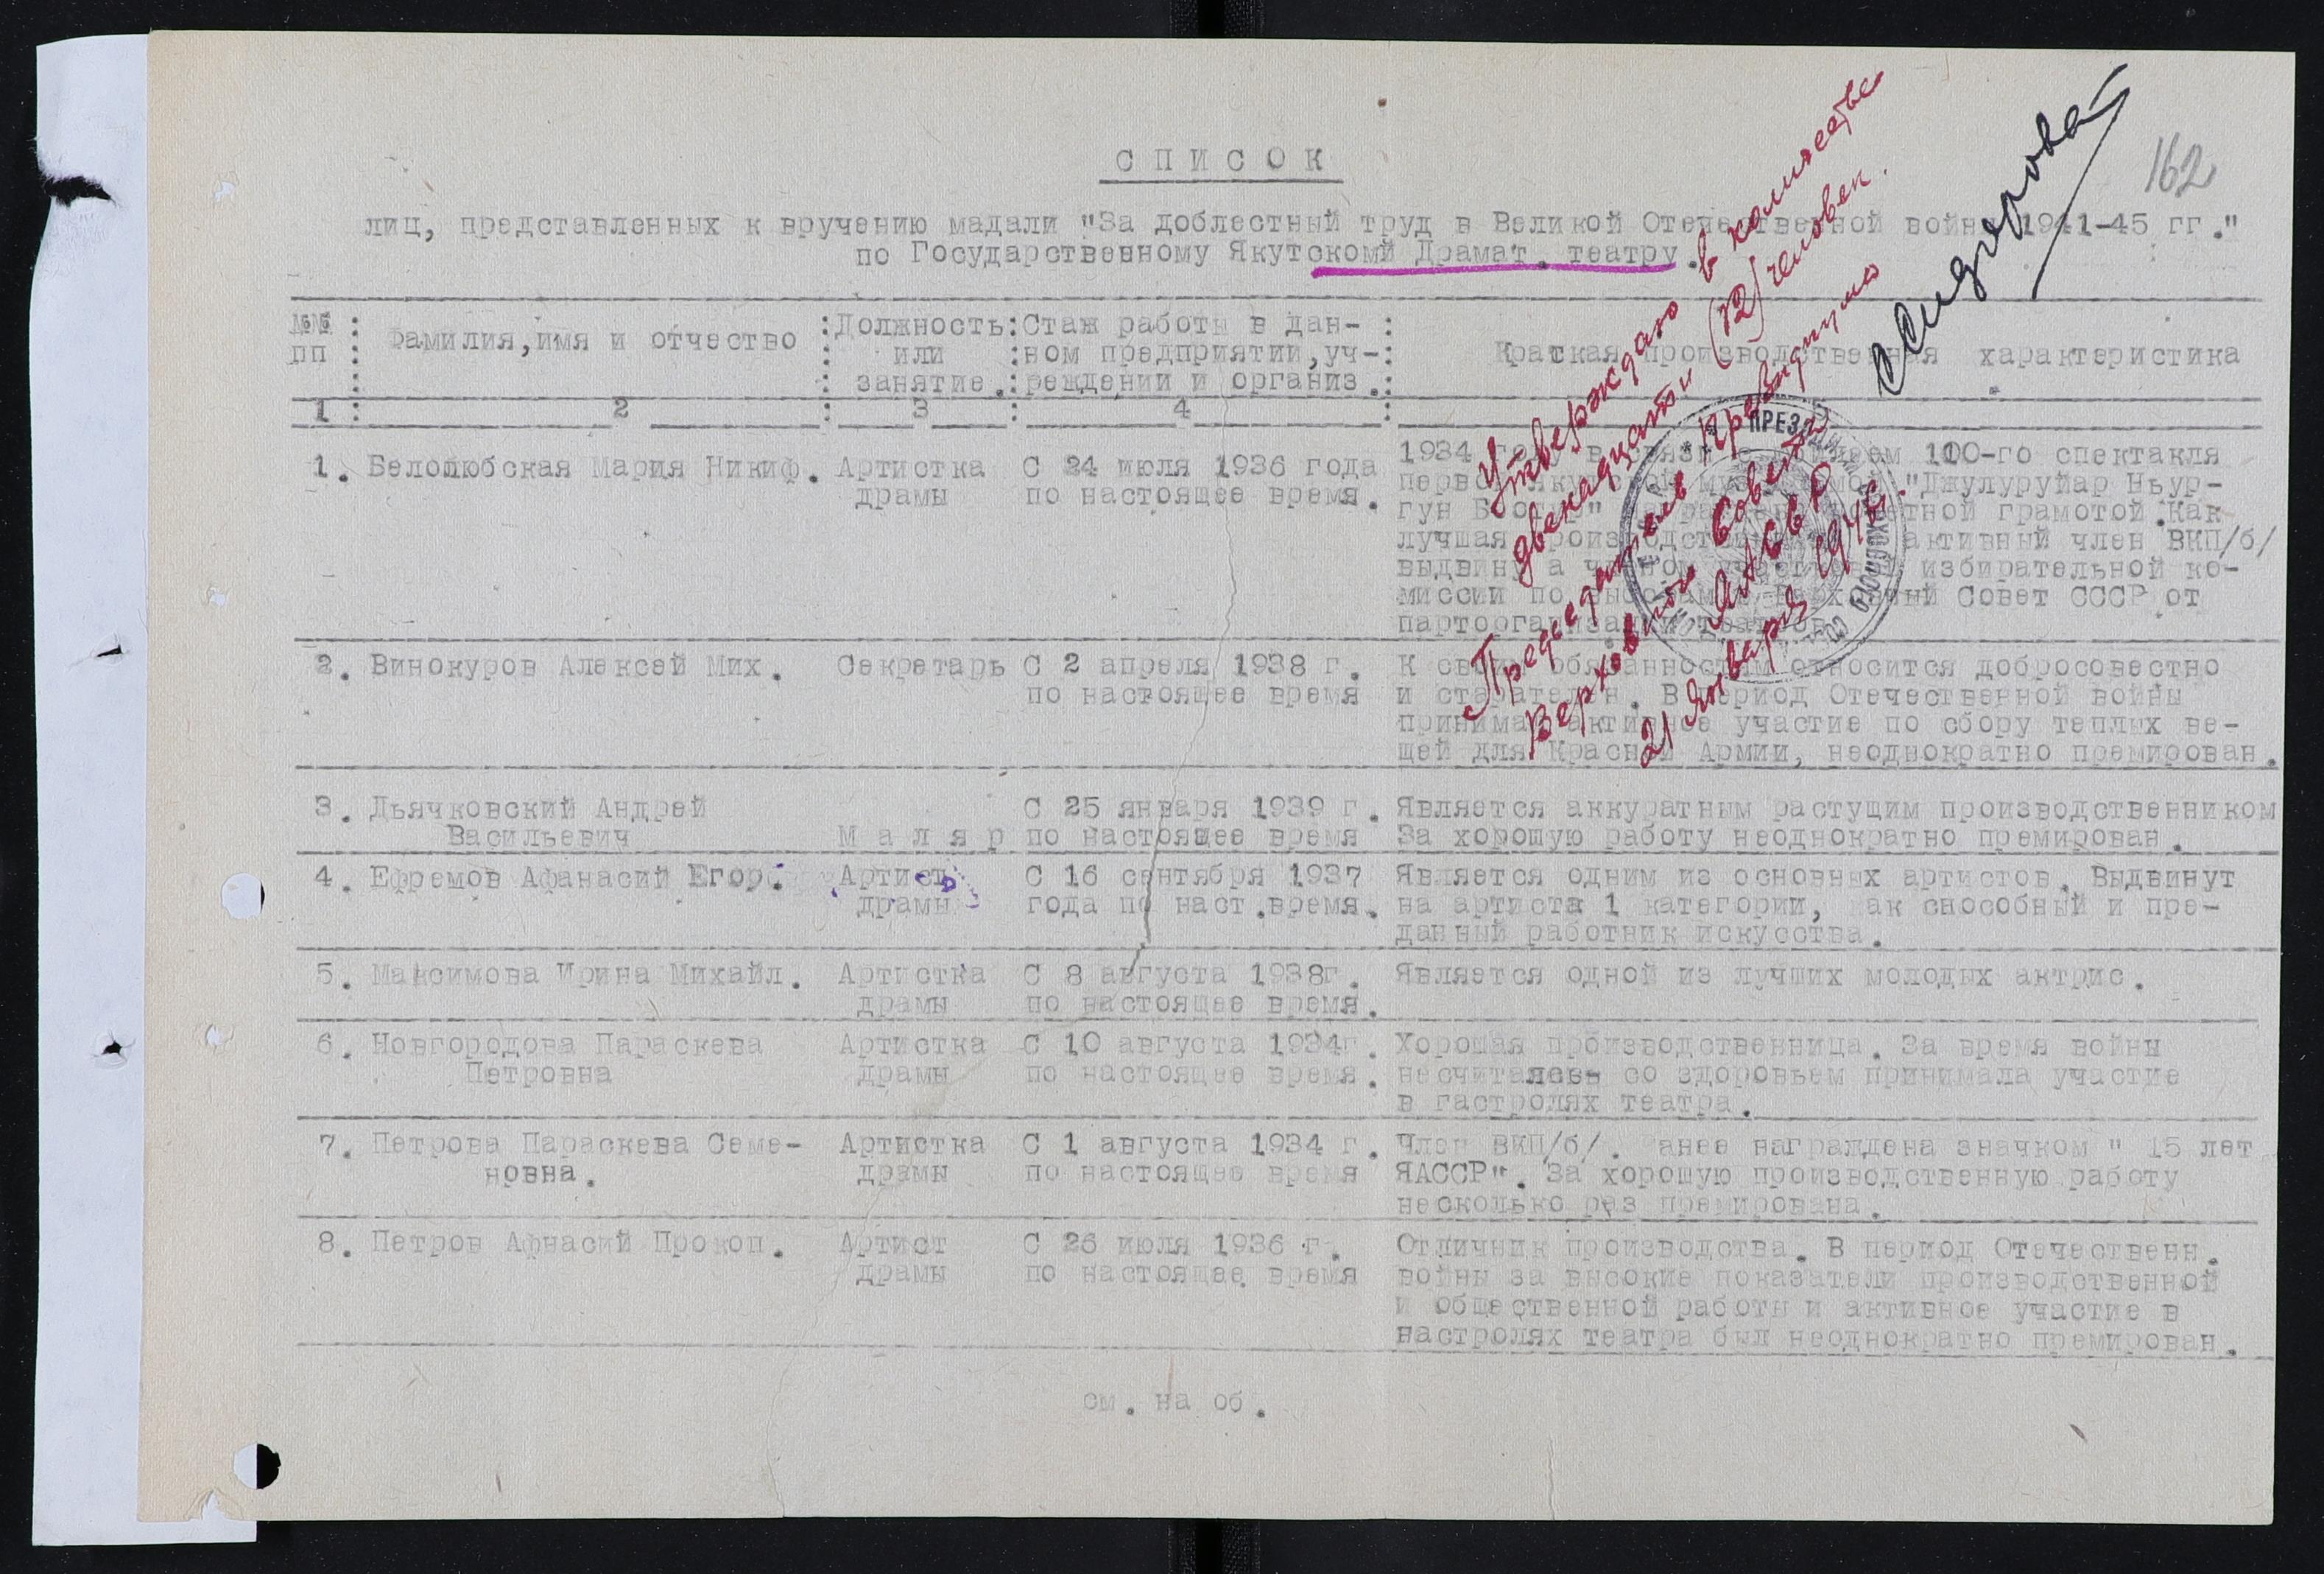 162
СПИСОК
лиц, представленных к вручению мадали "За доблестный труд в Великой Отечественной войне 1941-45 гг."
по Государственному Якутскомй Драмат. театру.
Утверждаю в количестве
двенадцати (12) человек.
Председатель Президиума
Верховного Совета
ЯАССР
21 января 1946г.
Сидорова
ПРЕЗИДИУМ
№№ : Фамилия,имя и отчество :Должность:Стаж работы в дан- : Краткая производственная характеристика
пп : : или :ном предприятии,уч-:
: : занятие.:реждении и организ.:
1 : 2 : 3 : 4 :
1. Белолюбская Мария Никиф. Артистка С 24 июля 1936 года 1934 году в связи с юбилеем 100-го спектакля
драмы по настоящее время. первой якутской муз. "Джулуруйар Ньур-
гун Боотур" грамотой.Как
лучшая активный член ВКП/б/
выдвинута членом участковой избирательной ко-
миссии по выборам в Верховный Совет СССР от
парторганизации театров.
2. Винокуров Алексей Мих. Секретарь С 2 апреля 1938 г. К своим обязанностям относится добросовестно
по настоящее время и старателен. В период Отечественной войны
принимал активное участие по сбору теплых ве-
щей для Красной Армии, неоднократно премирован.
3. Дьячковский Андрей С 25 января 1939 г. Является аккуратным растущим производственником
Васильевич Маляр по настоящее время За хорошую работу неоднократно премирован.
4. Ефремов Афанасий Егор. Артист С 16 сентября 1937 Является одним из основных артистов. Выдвинут
драмы года по наст.время. на артиста 1 категории, как способный и пре-
данный работник искусства.
5. Максимова Ирина Михайл. Артистка С 8 августа 1938г. Является одной из лучших молодых актрис.
драмы по настоящее время.
6. Новгородова Параскева Артистка С 10 августа 1934г. Хорошая производственница. За время войны
Петровна драмы по настоящее время. несчиталась со здоровьем принимала участие
в гастролях театра.
7. Петрова Параскева Семе- Артистка С 1 августа 1934 г. Член ВКП/б/. анее награждена значком " 15 лет
новна. драмы по настоящее время ЯАССР". За хорошую производственную работу
несколько раз премирована.
8. Петров Афнасий Прокоп. Артист С 26 июля 1936 г. Отличник производства. В период Отечественн.
драмы по настоящее время войны за высокие показатели производственной
и общественной работы и активное участие в
настролях театра был неоднократно премирован.
см. на об.